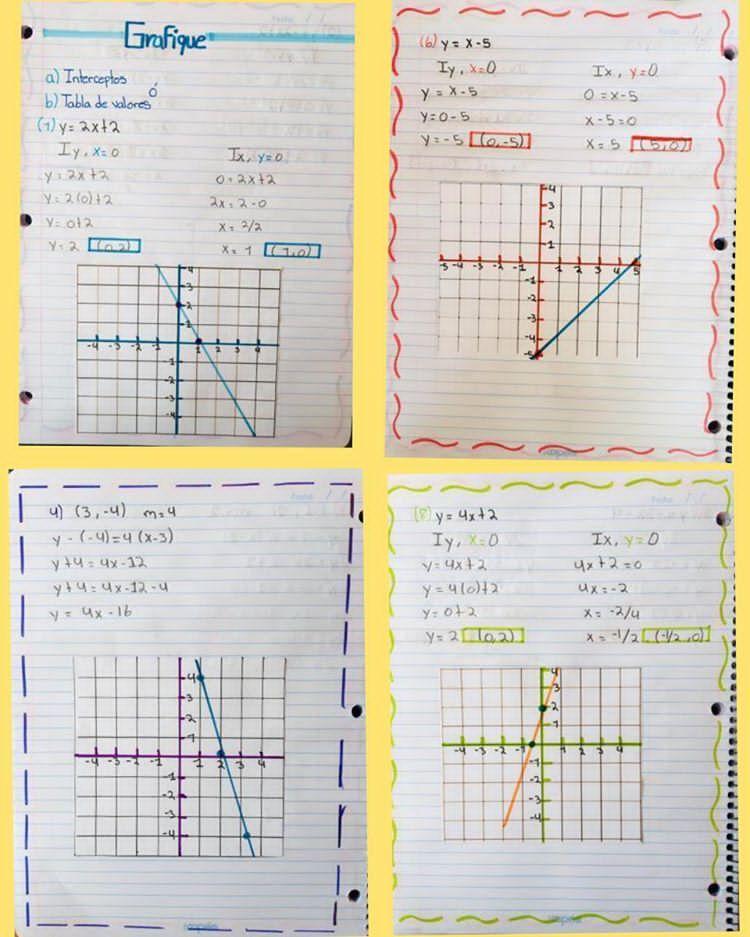 Grafique
a) Interceptos
ó
b) Tabla de valores
(1) y = 2x+2
Iy, x=0 Ix, y=0
y = 2x+2 0 = 2x+2
y = 2(0)+2 2x = 2-0
y = 0+2 x = 2/2
y = 2 (0,2) x = 1 (1,0)
4
2
1
-4 -3 -2 -1 1 2 3 4
-1
-2
-3
-4
(6) y = x-5
Iy, x=0 Ix, y=0
y = x-5 0 = x-5
y = 0-5 x-5=0
y = -5 (0,-5) x = 5 (5,0)
4
3
2
1
-5 -4 -3 -2 -1 1 2 3 4 5
-1
-2
-3
-4
-5
4) (3,-4) m=4
y - (-4) = 4 (x-3)
y+4 = 4x-12
y+4 = 4x-12-4
y = 4x-16
4
3
2
1
-4 -3 -2 -1 1 2 3 4
-1
-2
-3
-4
(8) y = 4x+2
Iy, x=0 Ix, y=0
y = 4x+2 4x+2=0
y = 4(0)+2 4x = -2
y = 0+2 x = -2/4
y = 2 (0,2) x = -1/2 (-1/2, 0)
4
3
2
1
-4 -3 -2 -1 1 2 3 4
-1
-2
-3
-4